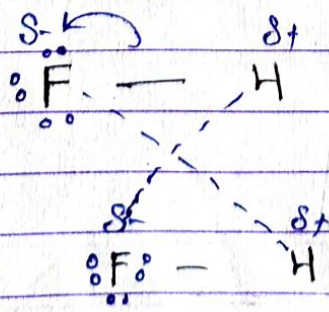 δ- δ+
F — H
δ- δ+
F — H